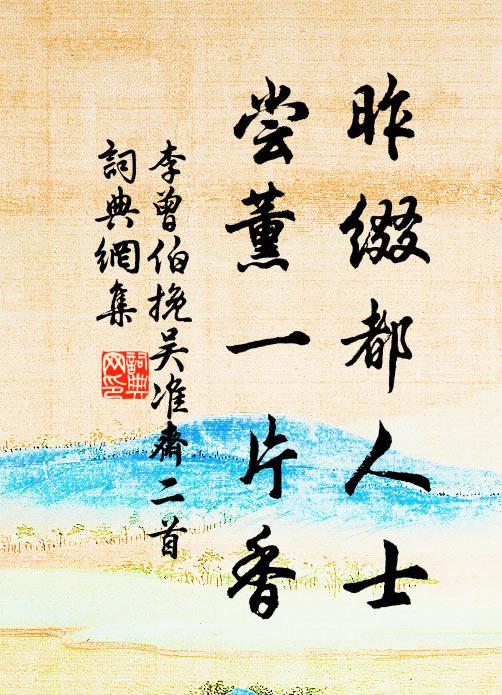 昨缀都人士
尝薰一片香
李曾伯挽吴准斋二首
詞典網集
詞典网印